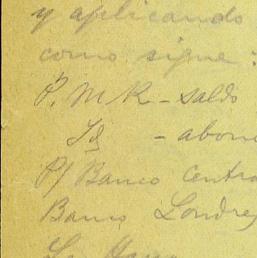 y aplicando
como sigue:
P. M R - saldo
Id - abono
P/ Banco Centra
Banco Londres